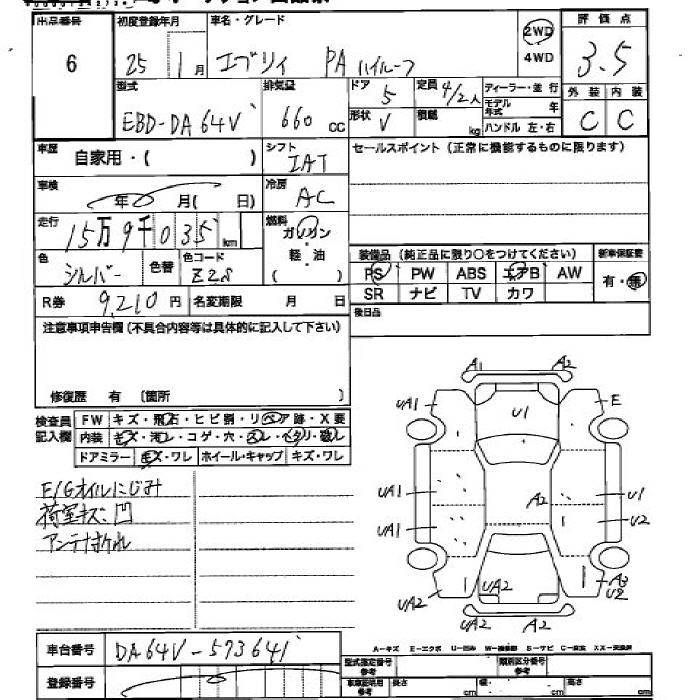 出品番号
6
初度登録年月
25 1月
車名・グレード
エブリイ PA ハイルーフ
2WD
4WD
評価点
3.5
外装 内装
C C
型式
EBD-DA64V
排気量
660 CC
ドア
5
定員
4/2人
ディーラー・並行
モデル年式 年
ハンドル 左・右
形状
V
積載 kg
車歴
自家用・( )
シフト
IAT
セールスポイント(正常に機能するものに限ります)
車検
年 月( 日)
冷房
AC
走行
15万9千035km
燃料
ガソリン
軽・油
( )
色
シルバー
色替
色コード
Z2S
装備品(純正品に限り○をつけてください)
新車保証書
PS PW ABS エアB AW
有・無
SR ナビ TV カワ
R券 9,210円
名変期限 月 日
後日品
注意事項申告欄(不具合内容等は具体的に記入して下さい)
修復歴 有 〔箇所 〕
検査員記入欄
FW キズ・飛石・ヒビ割・リペア跡・X要
内装 キズ・汚レ・コゲ・穴・スレ・ヘタリ・残シ
ドアミラー キズ・ワレ ホイール・キャップ キズ・ワレ
E/Gオイルにじみ
荷室キズ、凹
アンテナオレ
A1 A2
UA1 E
U1
UA1 A2 U1
UA1 U2
UA2 UA2 A3
U2
UA2 A2
車台番号
DA64V-573641
登録番号
A-キズ E-エクボ U-凹み W-補修跡 S-サビ C-腐食 XX-交換済
型式指定番号
参考
類別区分番号
参考
車庫証明用
参考
長さ cm
幅 cm
高さ cm